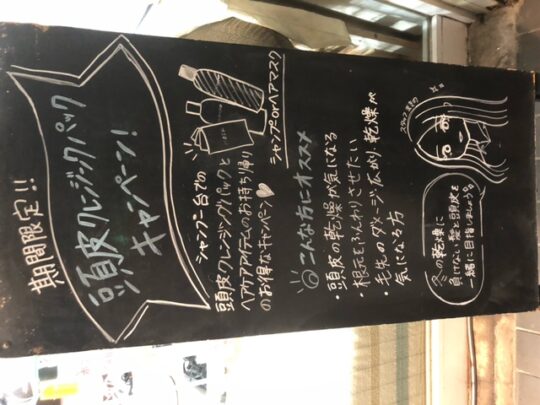 期間限定!!
頭皮クレンジングパック
キャンペーン!
シャンプー台での
頭皮クレンジングパックと
ヘアケアアイテムのお持ち帰り
のお得なキャンペーン♡
シャンプーorヘアマスク
◎こんな方にオススメ
・頭皮の乾燥が気になる
・根元をふんわりさせたい
・毛先のダメージ、広がり、乾燥が
気になる方
冬の乾燥に
負けない髪と頭皮を
一緒に目指しましょう。